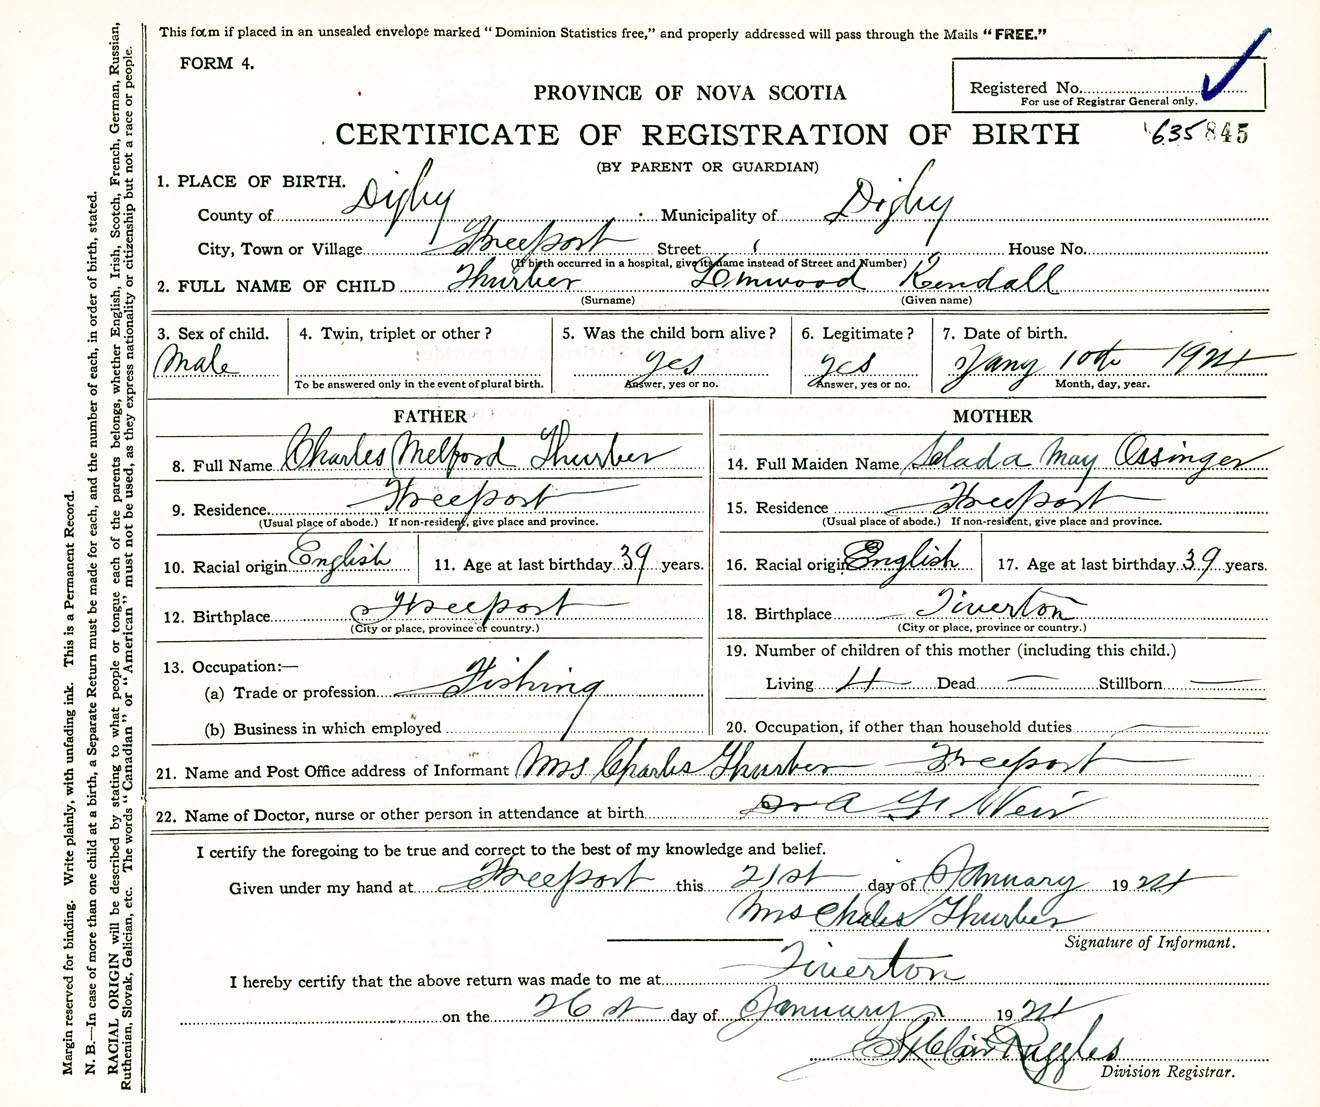 This form if placed in an unsealed envelope marked "Dominion Statistics free," and properly addressed will pass through the Mails "FREE."
FORM 4.
Registered No.
For use of Registrar General only.
PROVINCE OF NOVA SCOTIA
CERTIFICATE OF REGISTRATION OF BIRTH
635 845
(BY PARENT OR GUARDIAN)
1. PLACE OF BIRTH.
County of Digby Municipality of Digby
City, Town or Village Freeport Street House No.
(If birth occurred in a hospital, give its name instead of Street and Number)
2. FULL NAME OF CHILD Thurber Kendall
(Surname) (Given name)
3. Sex of child. 4. Twin, triplet or other? 5. Was the child born alive? 6. Legitimate? 7. Date of birth.
Male yes yes Jany 10th 1924
To be answered only in the event of plural birth. Answer, yes or no. Answer, yes or no. Month, day, year.
FATHER MOTHER
8. Full Name Charles Melford Thurber 14. Full Maiden Name May Ossinger
9. Residence Freeport 15. Residence Freeport
(Usual place of abode.) If non-resident, give place and province. (Usual place of abode.) If non-resident, give place and province.
10. Racial origin English 11. Age at last birthday 39 years. 16. Racial origin English 17. Age at last birthday 39 years.
12. Birthplace Freeport 18. Birthplace Tiverton
(City or place, province or country.) (City or place, province or country.)
13. Occupation:— 19. Number of children of this mother (including this child.)
(a) Trade or profession Fishing Living 4 Dead — Stillborn —
(b) Business in which employed 20. Occupation, if other than household duties —
21. Name and Post Office address of Informant Mrs Charles Thurber Freeport
22. Name of Doctor, nurse or other person in attendance at birth Dr A Weir
I certify the foregoing to be true and correct to the best of my knowledge and belief.
Given under my hand at Freeport this 21st day of January 1924
Mrs Charles Thurber
Signature of Informant.
I hereby certify that the above return was made to me at Tiverton
on the 26st day of January 1924
Ruggles
Division Registrar.
Margin reserved for binding. Write plainly, with unfading ink. This is a Permanent Record.
N. B.—In case of more than one child at a birth, a Separate Return must be made for each, and the number of each, in order of birth, stated.
RACIAL ORIGIN will be described by stating to what people or tongue each of the parents belongs, whether English, Irish, Scotch, French, German, Russian,
Ruthenian, Slovak, Galician, etc. The words "Canadian" or "American" must not be used, as they express nationality or citizenship but not a race or people.